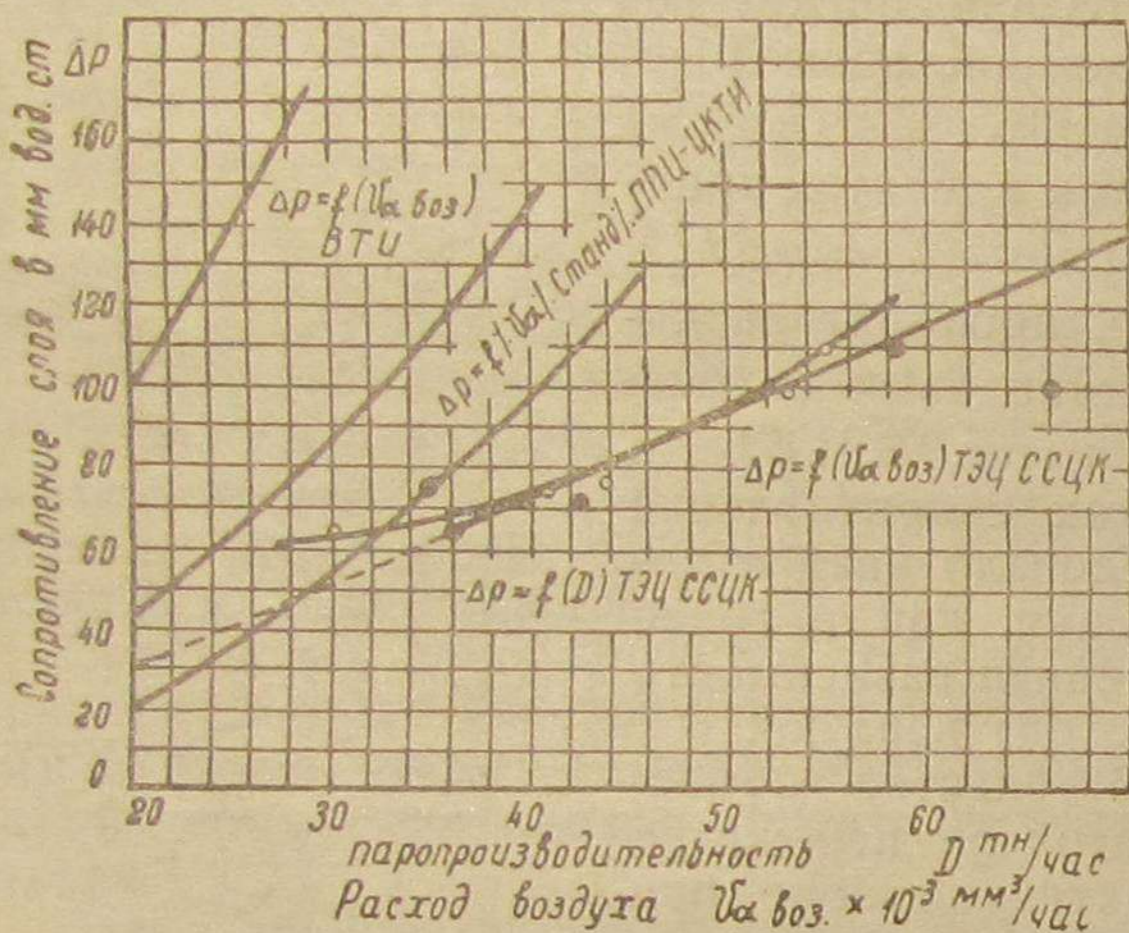 Сопротивление слоя в мм вод. ст
ΔP
160
140
120
100
80
60
40
20
0
Δp=f(Vα воз)
ВТИ
Δp=f/Vα/. Станд%. ЛПИ-ЦКТИ
Δp=f(Vα воз) ТЭЦ ССЦК
Δp=f(D) ТЭЦ ССЦК
20 30 40 50 60
паропроизводительность D тн/час
Расход воздуха Vα воз. × 10⁻³ мм³/час